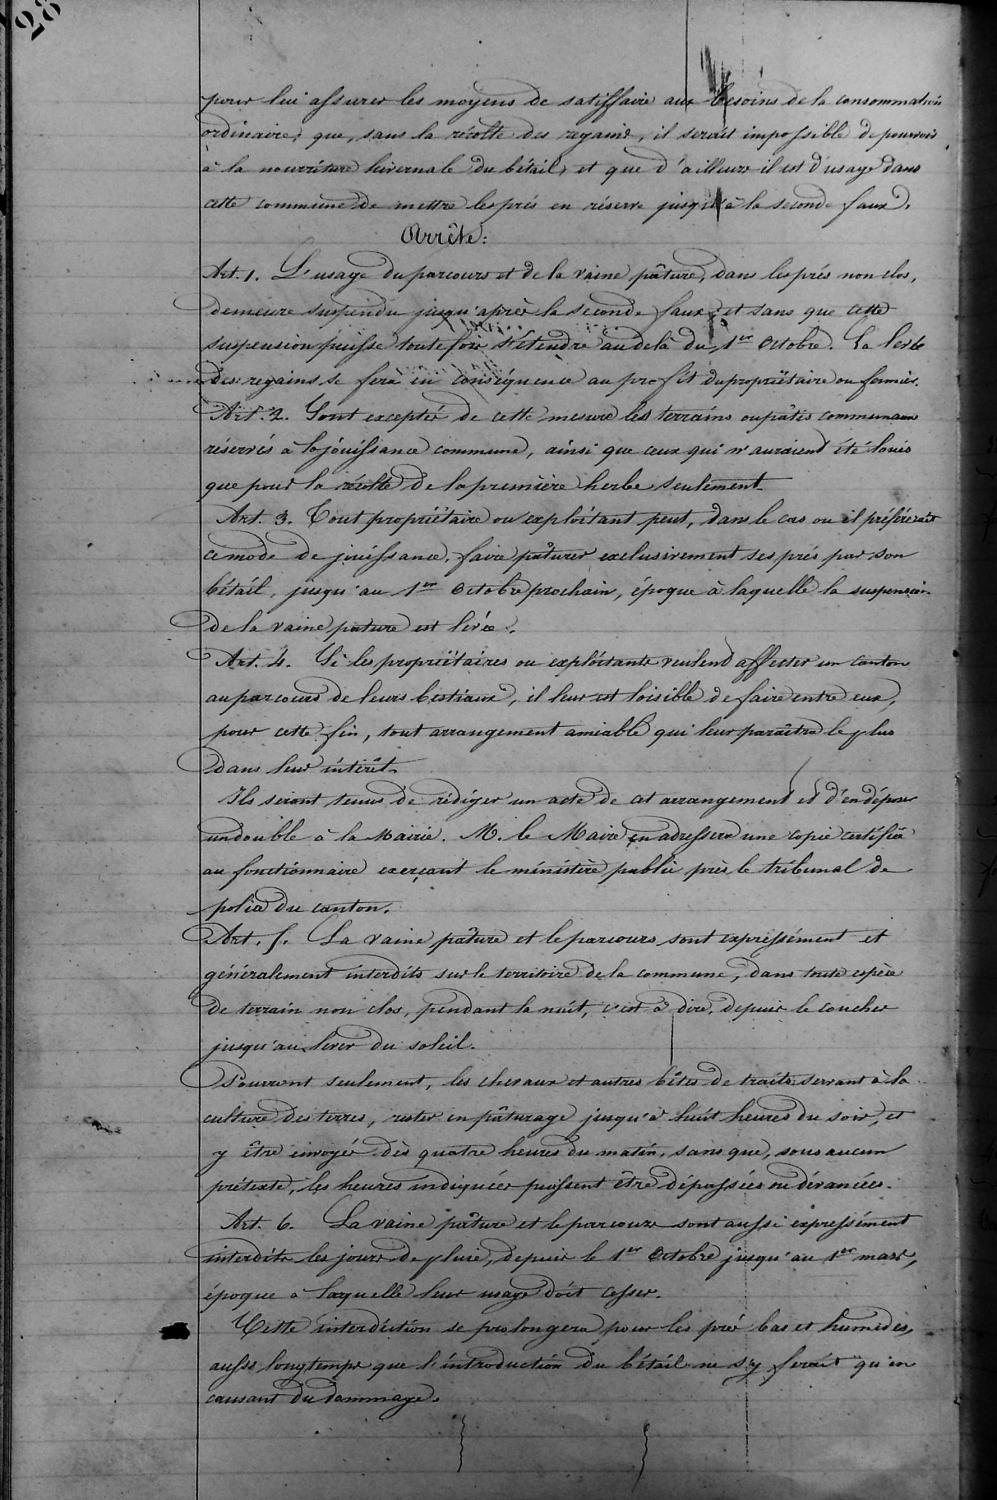 28
pour lui assurer les moyens de satisfaire aux besoins de la consommation
ordinaire; que, sans la récolte des regains, il serait impossible de pourvoir
à la nourriture hivernale du bétail, et que d'ailleurs il est d'usage dans
cette commune de mettre les prés en réserve jusqu'à la seconde faux.
Arrête:
Art. 1. L'usage du parcours et de la vaine pâture, dans les prés non clos,
demeure suspendu jusqu'après la seconde faux, et sans que cette
suspension puisse toutefois s'étendre au delà du 1er Octobre. La levée
des regains se fera en conséquence au profit du propriétaire ou fermier.
Art. 2. Sont excepté de cette mesure les terrains ou pâtis communaux
réservés à la jouissance commune, ainsi que ceux qui n'auraient été loués
que pour la récolte de la première herbe seulement.
Art. 3. Tout propriétaire ou exploitant peut, dans le cas ou il préférerait
ce mode de jouissance, faire pâturer exclusivement ses prés par son
bétail, jusqu'au 1er Octobre prochain, époque à laquelle la suspension
de la vaine pature est levée.
Art. 4. Si les propriétaires ou exploitants veulent affecter un canton
au parcours de leurs bestiaux, il leur est loisible de faire entre eux,
pour cette fin, tout arrangement amiable qui leur paraîtra le plus
dans leur intérêt.
Ils seront tenus de rédiger un acte de cet arrangement et d'en déposer
un double à la Mairie. M. le Maire en adressera une copie certifiée
au fonctionnaire exerçant le ministère public près le tribunal de
police du canton.
Art. 5. La vaine pâture et le parcours sont expressément et
généralement interdits sur le territoire de la commune, dans toute espèce
de terrain non clos, pendant la nuit, c'est à dire, depuis le coucher
jusqu'au lever du soleil.
Pourront seulement, les chevaux et autres bêtes de traits servant à la
culture des terres, rester en pâturage jusqu'à huit heures du soir, et
y être envoyé dès quatre heures du matin, sans que, sous aucun
prétexte, les heures indiquées puissent être dépassées ou dévancées.
Art. 6. La vaine pâture et le parcours sont aussi expressément
interdits les jours de pluie, depuis le 1er Octobre jusqu'au 1er mars,
époque à laquelle leur usage doit cesser.
Cette interdiction se prolongera pour les prés bas et humides,
aussi longtemps que l'introduction du bétail ne s'y ferait qu'en
causant du dommage.